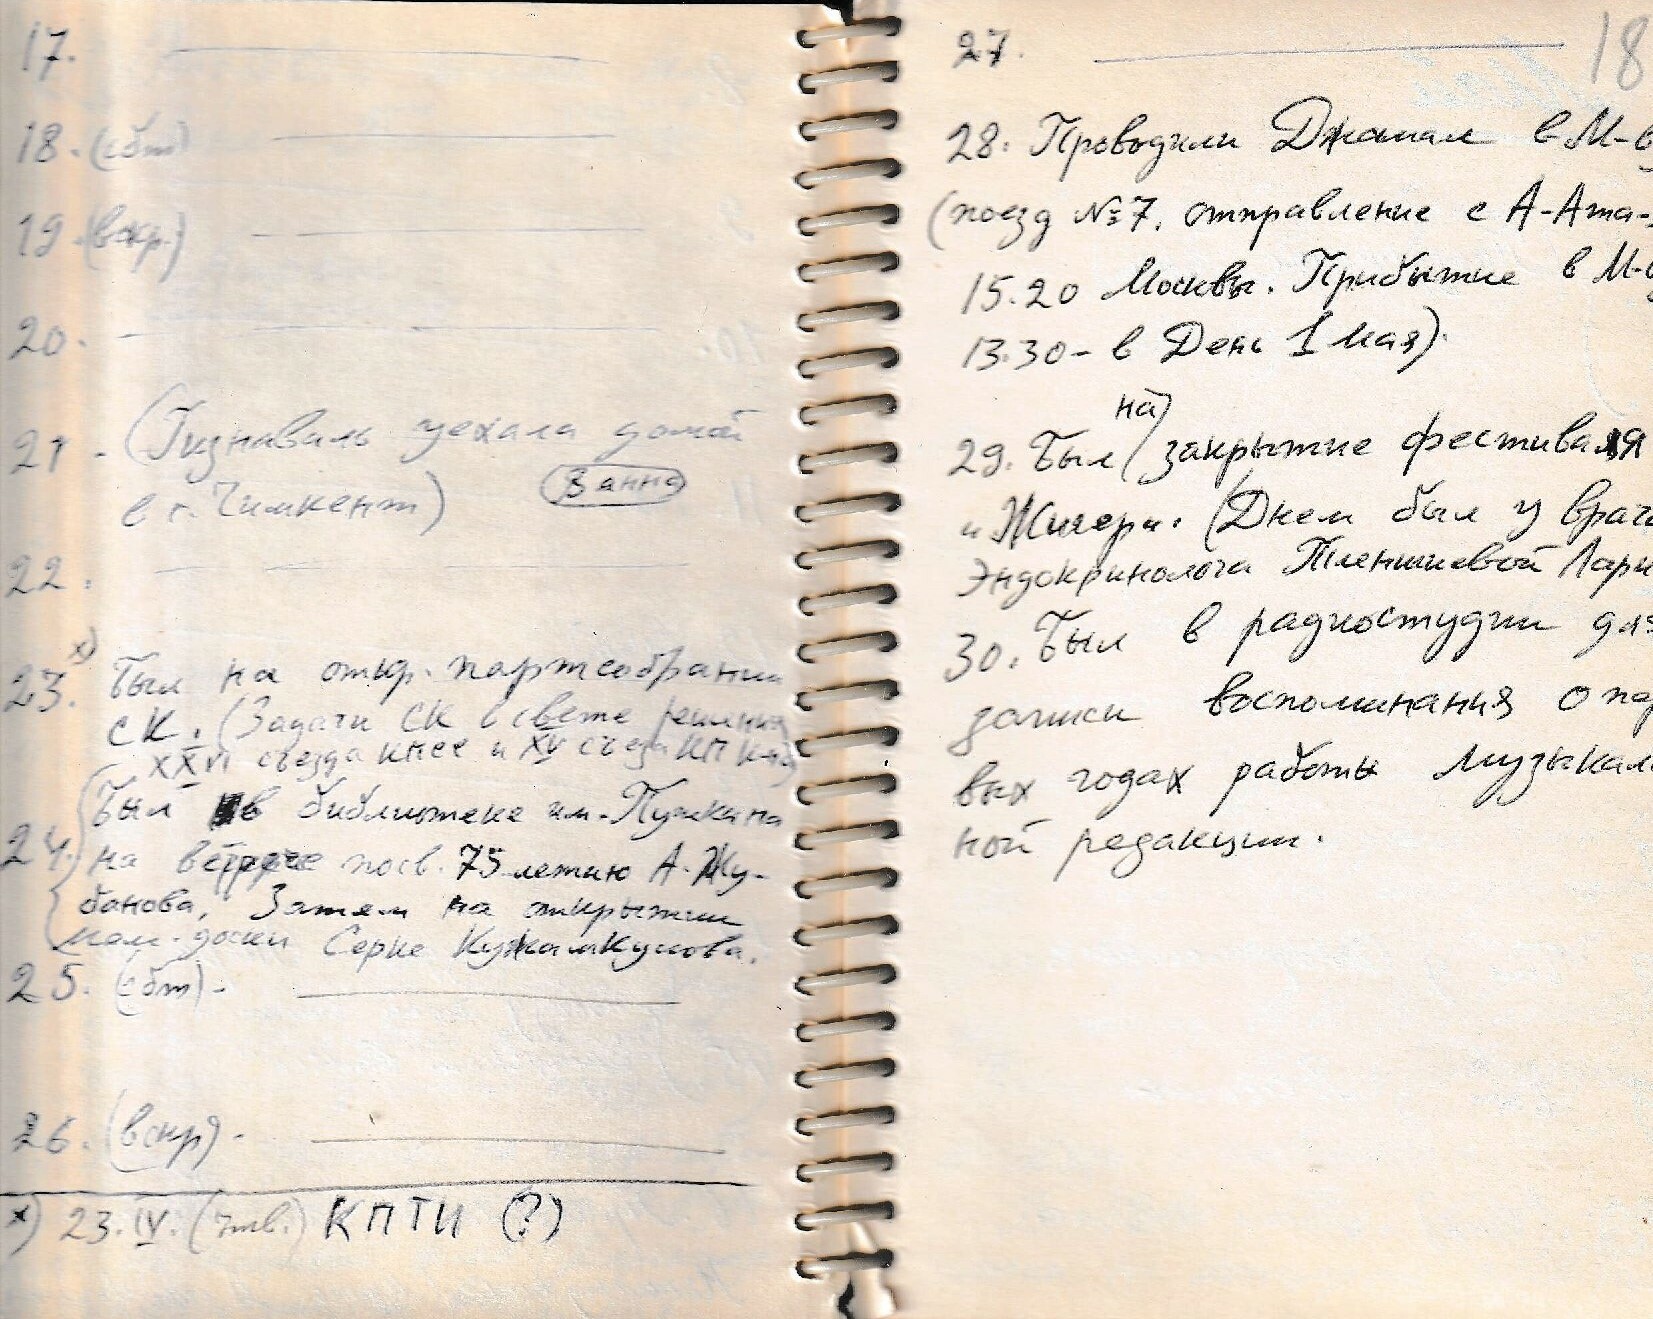 17.
18. (сбт)
19. (вскр.)
20.
21 - (Гизнаваль уехала домой
в г. Чимкент) Ванна
22.
23. х) Был на откр. партсобрании
СК. (Задачи СК в свете решений
XXVI съезда КПСС и XV съезда КП Каз)
Был в библиотеке им. Пушкина
24. на встрече посв. 75-летию А. Жу-
банова, Затем на открытии
мем. доски Серке Кужамкулова.
25. (сбт) -
26. (вскр) -
х) 23.IV. (чтв.) КПТИ (?)
27.
18
28. Проводили Джамал в М-в
(поезд №7. отправление с А-Ата-
15.20 Москвы. Прибытие в М-
13.30 - в День 1 Мая).
на
29. Был закрытие фестиваля
"Жигери. (Днем был у врач
Эндокринолога Тленшиевой Лари
30. Был в радиостудии для
записи воспоминания о пер
вых годах работы музыкаль
ной редакции.